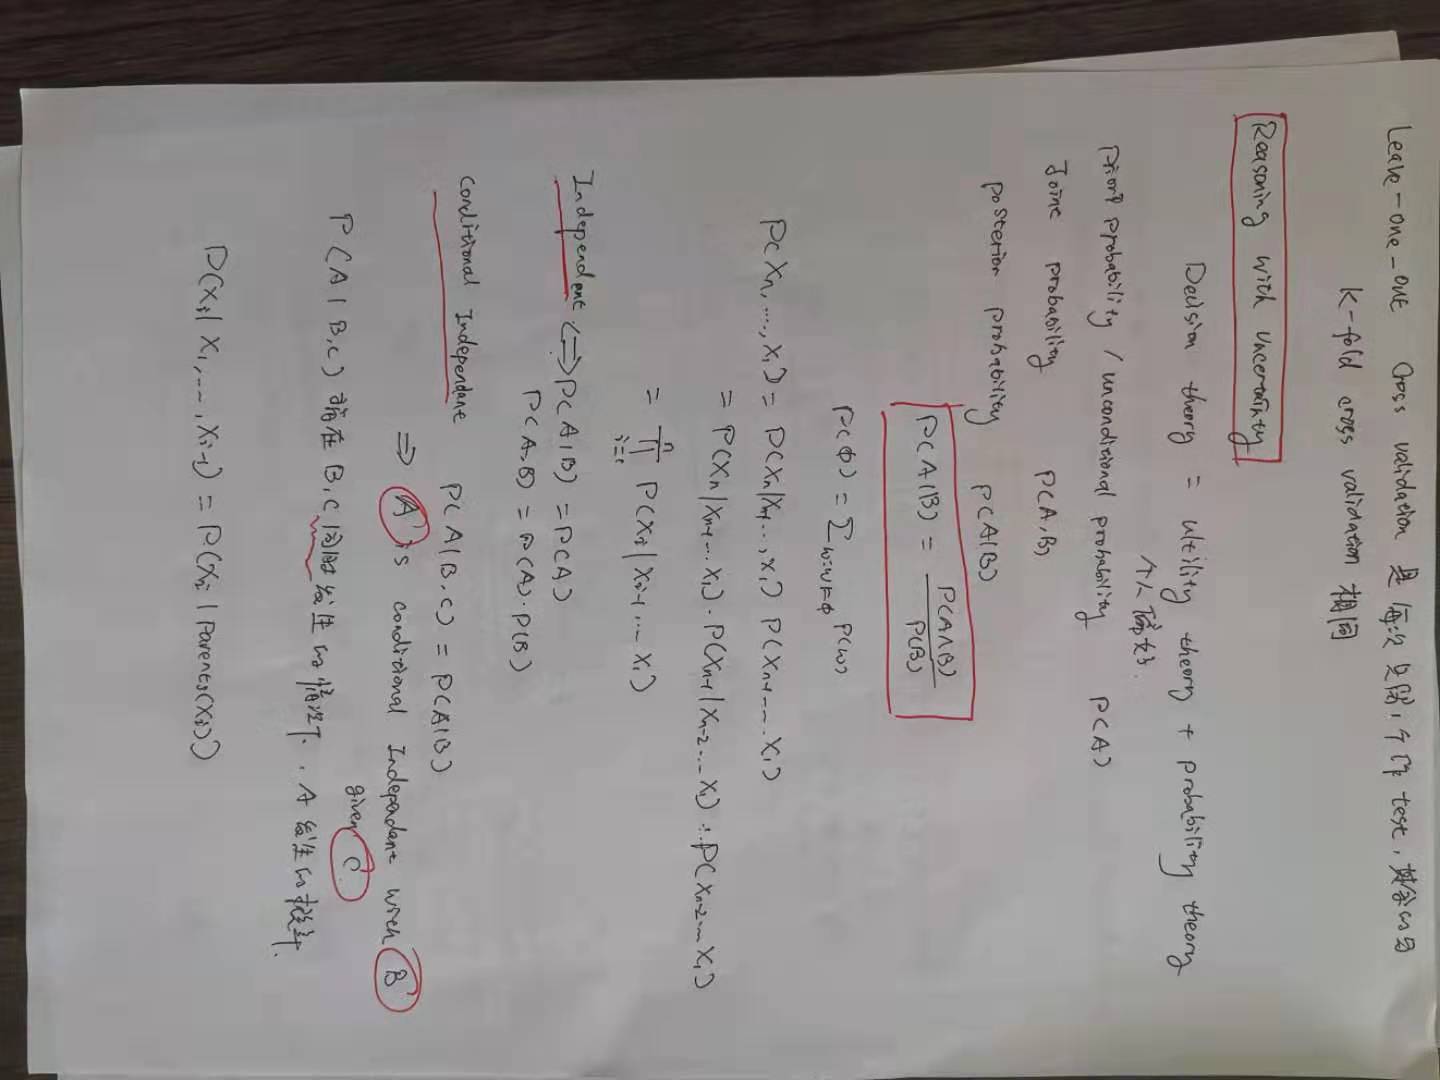 Leave-one-out Cross validation 是每次只留1个作test,其余的与
K-fold cross validation 相同
Reasoning with uncerainty
Decision theory = ultility theory + probability theory
个人偏好.
Priori probability / unconditional probability P(A)
Joine probability P(A,B)
posterion probability P(A|B)
P(A|B) = P(A∧B) / P(B)
P(ϕ) = Σω:ω⊨ϕ P(ω)
P(Xn,...,X1) = P(Xn|Xn-1...,X1) P(Xn-1...X1)
= P(Xn|Xn-1...X1)·P(Xn-1|Xn-2...X1)·P(Xn-2...X1)
= ∏ P(Xi|Xi-1...X1)
Independent ⇔ P(A|B) = P(A)
P(A,B) = P(A)·P(B)
conditional Independent P(A|B,C) = P(A|B)
⇒ A is conditional Independent with B
given C
P(A|B,C) 指在B,C同时发生的情况下,A发生的概率.
P(Xi|X1,...,Xi-1) = P(Xi|Parents(Xi))